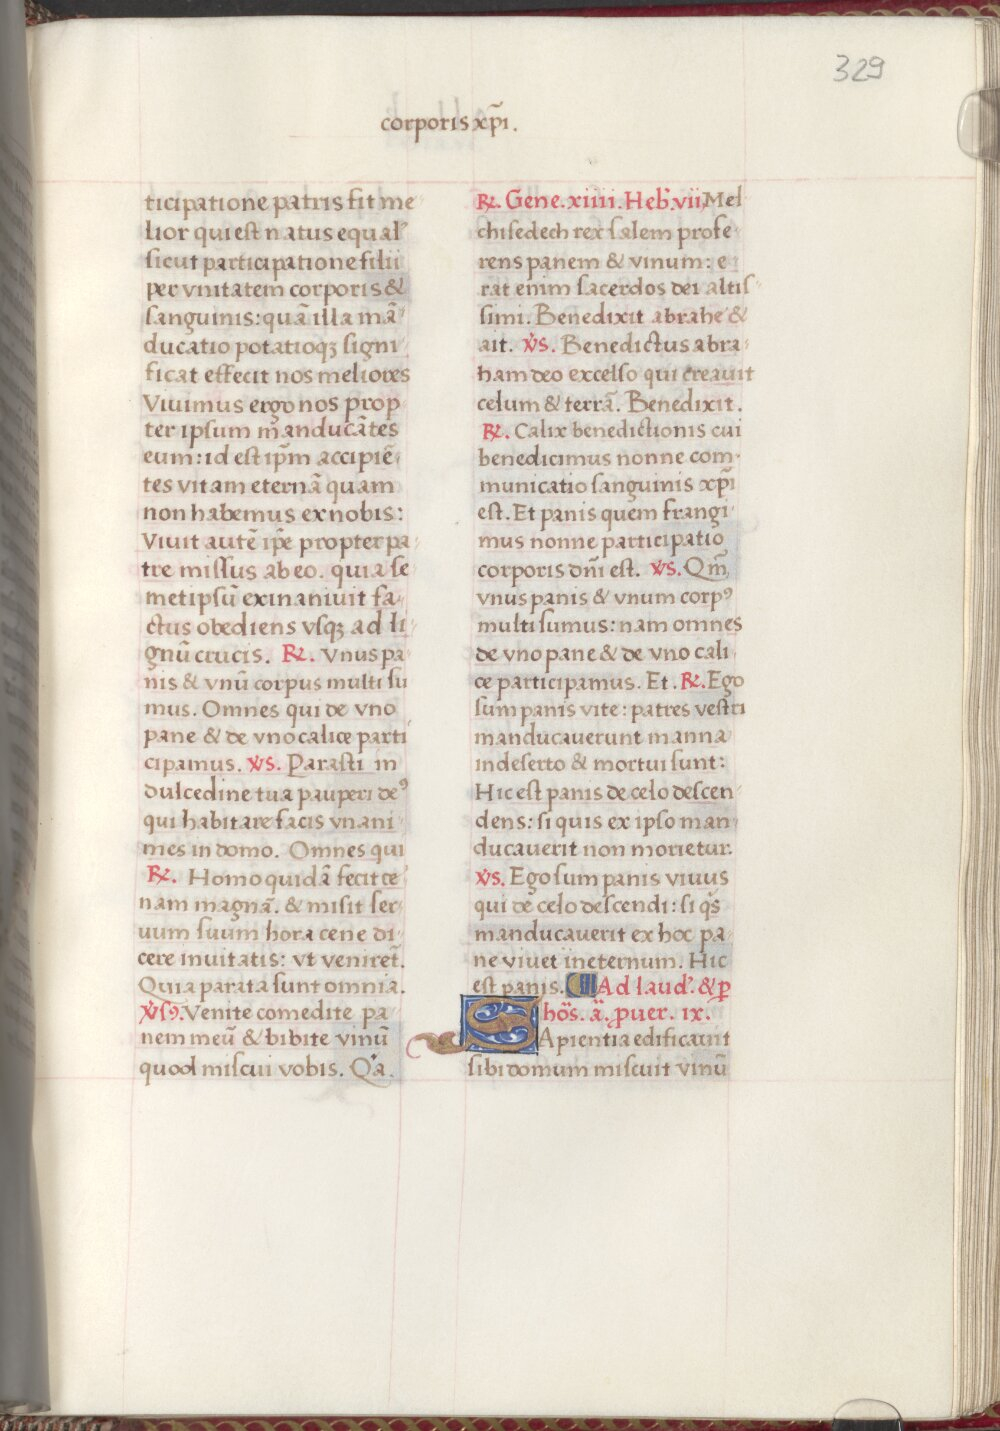 329
corporis xp̃i.
ticipatione patris fit me
lior qui est natus equal'
sicut participatione filii
per vnitatem corporis &
sanguinis: quã illa mã
ducatio potatioqꝫ signi
ficat effecit nos meliores
Viuimus ergo nos prop
ter ipsum manducãtes
eum: id est ip̃m accipiẽ
tes vitam eternã quam
non habemus ex nobis:
Viuit autẽ ip̃e propter pa
tre missus ab eo. quia se
metipsũ exinaniuit fa
ctus obediens vsqꝫ ad li
gnũ crucis. ℟. Vnus pa
nis & vnũ corpus multi su
mus. Omnes qui de vno
pane & de vno calice parti
cipamus. ṼS. Parasti in
dulcedine tua pauperi deꝰ
qui habitare facis vnani
mes in domo. Omnes qui
℟. Homo quidã fecit ce
nam magnã. & misit ser
uum suum hora cene di
cere inuitatis: vt veniret̃.
Quia parata sunt omnia.
Ṽsꝰ. Venite comedite pa
nem meũ & bibite vinũ
quod miscui vobis. Q'a.
℟. Gene. xiiii. Heb'. vii. Mel
chisedech rex salem profe
rens panem & vinum: e
rat enim sacerdos dei altis
simi. Benedixit abrahe &
ait. ṼS. Benedictus abra
ham deo excelso qui creauit
celum & terrã. Benedixit.
℟. Calix benedictionis cui
benedicimus nonne com
municatio sanguinis xp̃i
est. Et panis quem frangi
mus nonne participatio
corporis dñi est. ṼS. Qm̃
vnus panis & vnum corpꝰ
multi sumus: nam omnes
de vno pane & de vno cali
ce participamus. Et. ℟. Ego
sum panis vite: patres vestri
manducauerunt manna
in deserto & mortui sunt:
Hic est panis de celo descen
dens: si quis ex ipso man
ducauerit non morietur.
ṼS. Ego sum panis viuus
qui de celo descendi: si q's
manducauerit ex hoc pa
ne viuet in eternum. Hic
est panis. Ad laud'. & p
hõs. ã. puer. ix.
SApientia edificauit
sibi domum miscuit vinũ